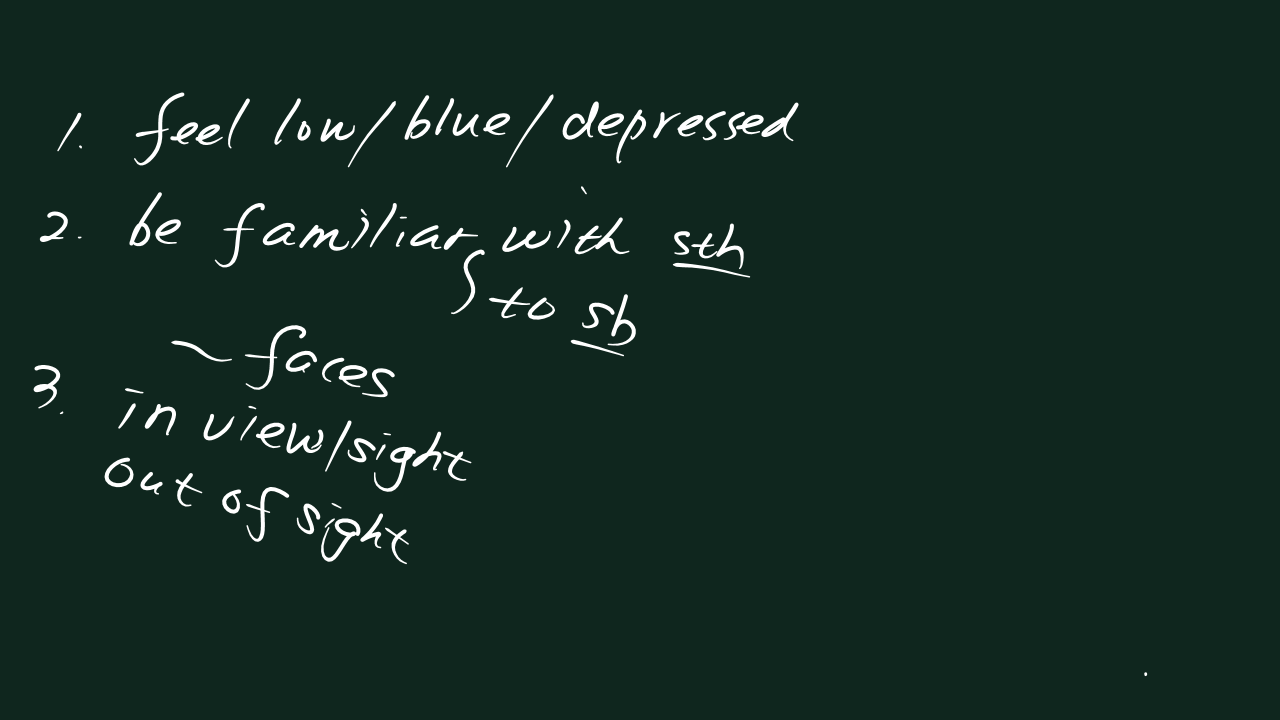 1. feel low/blue/depressed
2. be familiar with sth
to sb
~ faces
3. in view/sight
out of sight